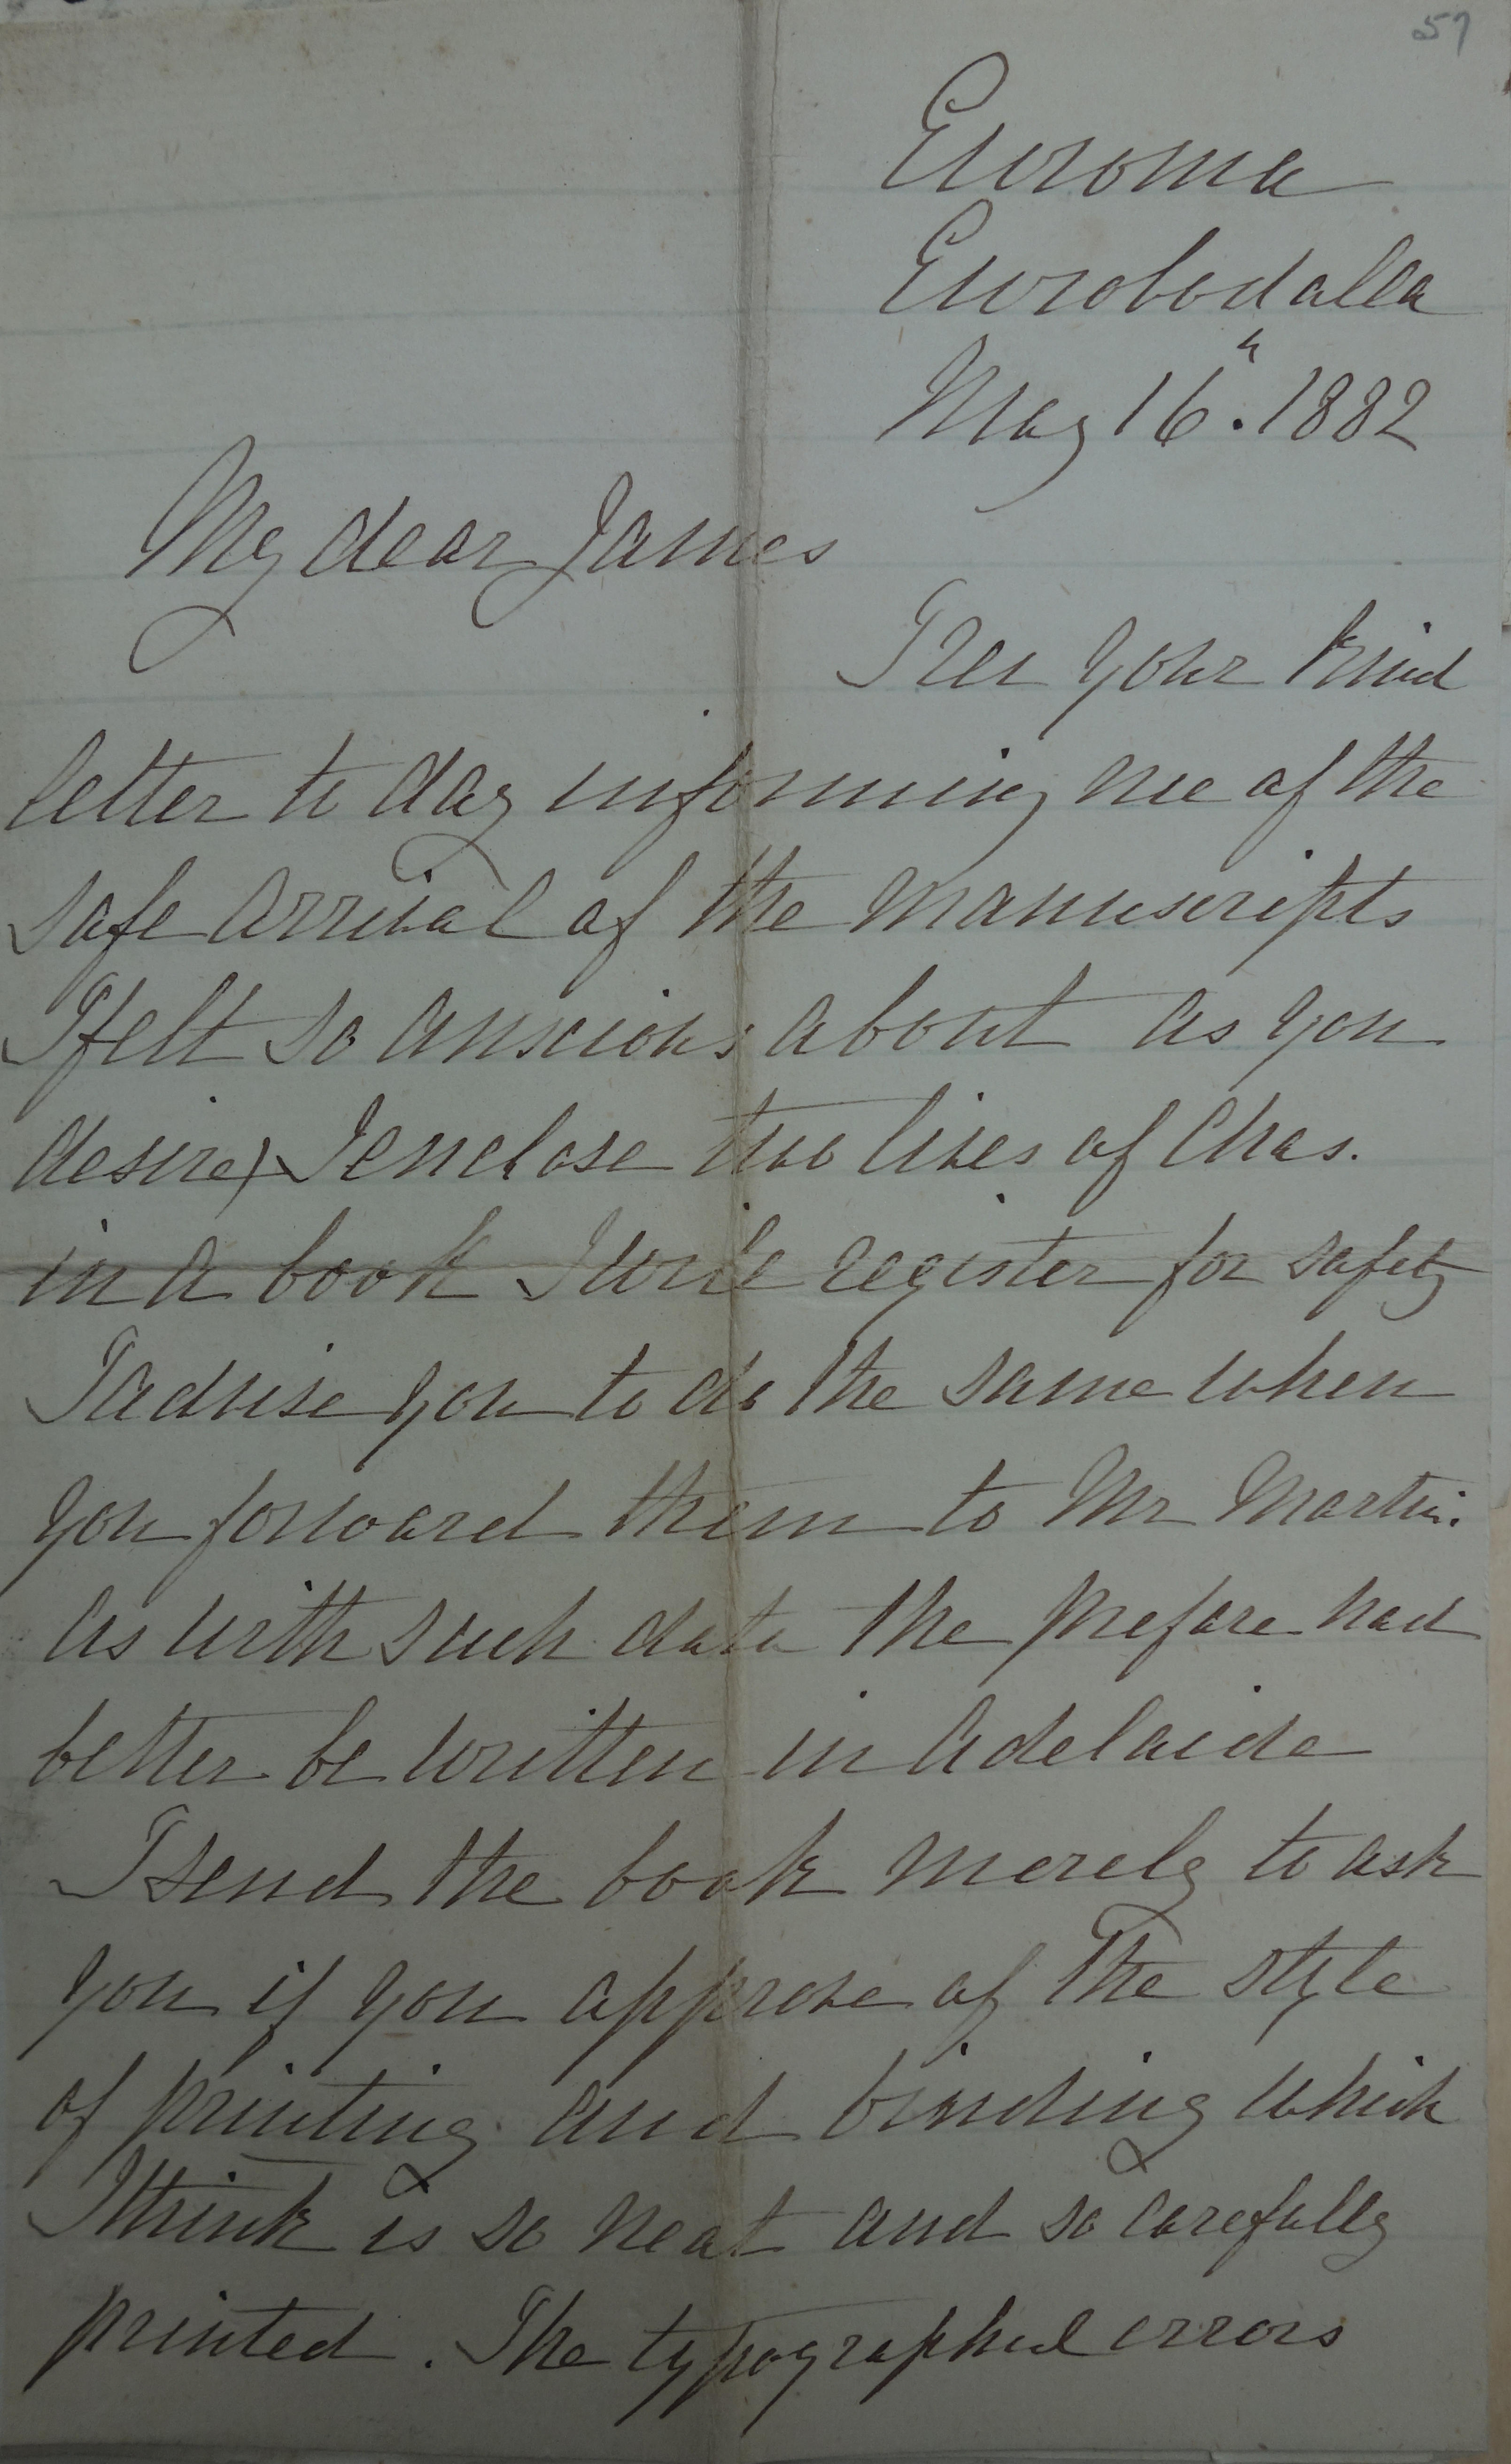 57
Euroma
Eurobodalla
May 16th. 1882
My dear James
I rec your kind
letter to day informing me of the
safe arrival of the manuscripts
I felt so anxious about as you
desire, I enclose two lives of Chas.
in a book I will register for safety
I advise you to do the same when
you forward them to Mr Martin.
as with such data the preface had
better be written in Adelaide
I send the book merely to ask
you if you approve of the style
of printing and binding which
I think is so neat and so carefully
printed. The typographical errors